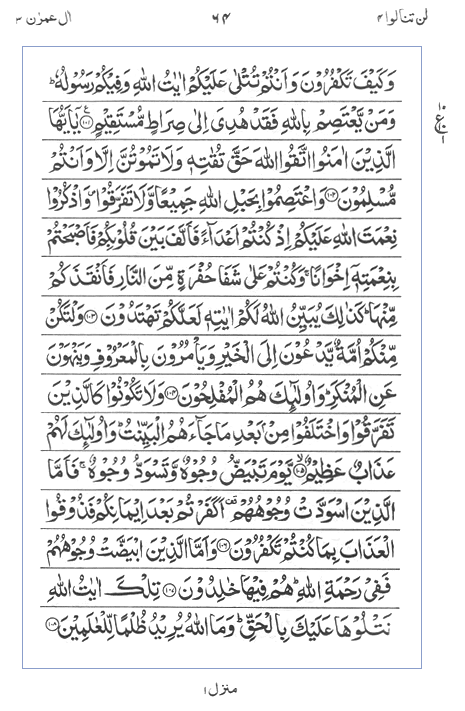 لن تنالوا ۴ ۶۴ اٰل عمرٰن ۳
وَكَيْفَ تَكْفُرُوْنَ وَاَنْتُمْ تُتْلٰى عَلَيْكُمْ اٰيٰتُ اللّٰهِ وَفِيْكُمْ رَسُوْلُهٗ ؕ
وَمَنْ يَّعْتَصِمْ بِاللّٰهِ فَقَدْ هُدِىَ اِلٰى صِرَاطٍ مُّسْتَقِيْمٍ ۝۱۰۱ع يٰۤاَيُّهَا
الَّذِيْنَ اٰمَنُوا اتَّقُوا اللّٰهَ حَقَّ تُقٰتِهٖ وَلَا تَمُوْتُنَّ اِلَّا وَاَنْتُمْ
مُّسْلِمُوْنَ ۝۱۰۲ وَاعْتَصِمُوْا بِحَبْلِ اللّٰهِ جَمِيْعًا وَّلَا تَفَرَّقُوْا ۪ وَاذْكُرُوْا
نِعْمَتَ اللّٰهِ عَلَيْكُمْ اِذْ كُنْتُمْ اَعْدَآءً فَاَلَّفَ بَيْنَ قُلُوْبِكُمْ فَاَصْبَحْتُمْ
بِنِعْمَتِهٖۤ اِخْوَانًا ۚ وَكُنْتُمْ عَلٰى شَفَا حُفْرَةٍ مِّنَ النَّارِ فَاَنْقَذَكُمْ
مِّنْهَا ؕ كَذٰلِكَ يُبَيِّنُ اللّٰهُ لَكُمْ اٰيٰتِهٖ لَعَلَّكُمْ تَهْتَدُوْنَ ۝۱۰۳ وَلْتَكُنْ
مِّنْكُمْ اُمَّةٌ يَّدْعُوْنَ اِلَى الْخَيْرِ وَيَاْمُرُوْنَ بِالْمَعْرُوْفِ وَيَنْهَوْنَ
عَنِ الْمُنْكَرِ ؕ وَاُولٰٓئِكَ هُمُ الْمُفْلِحُوْنَ ۝۱۰۴ وَلَا تَكُوْنُوْا كَالَّذِيْنَ
تَفَرَّقُوْا وَاخْتَلَفُوْا مِنْۢ بَعْدِ مَا جَآءَهُمُ الْبَيِّنٰتُ ؕ وَاُولٰٓئِكَ لَهُمْ
عَذَابٌ عَظِيْمٌ ۝۱۰۵ۙ يَّوْمَ تَبْيَضُّ وُجُوْهٌ وَّتَسْوَدُّ وُجُوْهٌ ۚ فَاَمَّا
الَّذِيْنَ اسْوَدَّتْ وُجُوْهُهُمْ اَكَفَرْتُمْ بَعْدَ اِيْمَانِكُمْ فَذُوْقُوا
الْعَذَابَ بِمَا كُنْتُمْ تَكْفُرُوْنَ ۝۱۰۶ وَاَمَّا الَّذِيْنَ ابْيَضَّتْ وُجُوْهُهُمْ
فَفِىْ رَحْمَةِ اللّٰهِ ؕ هُمْ فِيْهَا خٰلِدُوْنَ ۝۱۰۷ تِلْكَ اٰيٰتُ اللّٰهِ
نَتْلُوْهَا عَلَيْكَ بِالْحَقِّ ؕ وَمَا اللّٰهُ يُرِيْدُ ظُلْمًا لِّلْعٰلَمِيْنَ ۝۱۰۸
منزل ۱